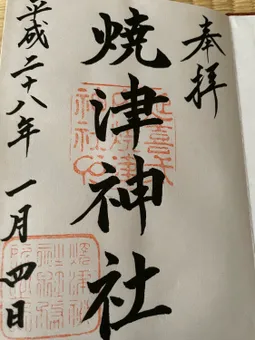 奉拝
焼津神社
平成二十八年 一月 四日